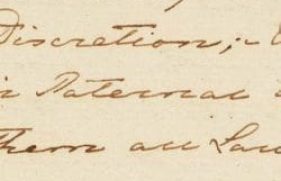 Discretion;
Paternal
them all Law